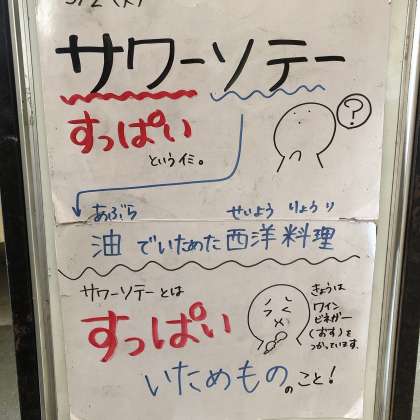 サワーソテー
すっぱい
というイミ。
?
あぶら せいよう りょうり
油 でいためた 西洋 料理
サワーソテーとは
すっぱい
いためもの のこと!
きょうは
ワイン
ビネガー
(おす)を
つかっています。